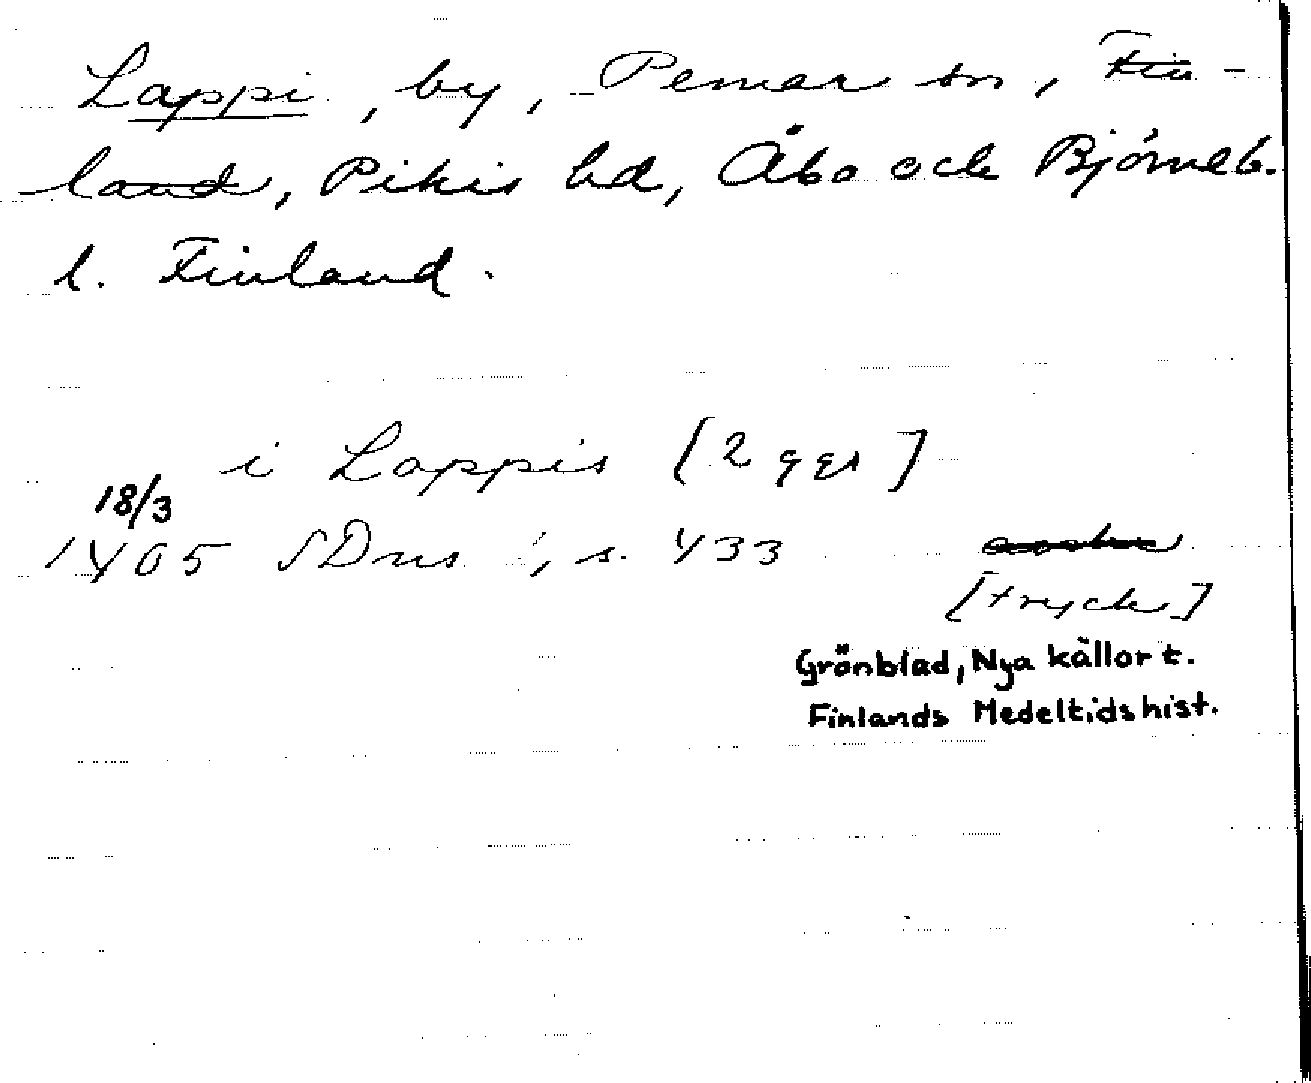 Lappi, by, Pemar sn, Fin-
land, Pikis hd, Åbo och Björneb.
l. Finland.
i Lappis [2 ggr]
18/3
1405 SDns 1, s. 433
[tryck]
Grönblad, Nya källor t.
Finlands Medeltidshist.